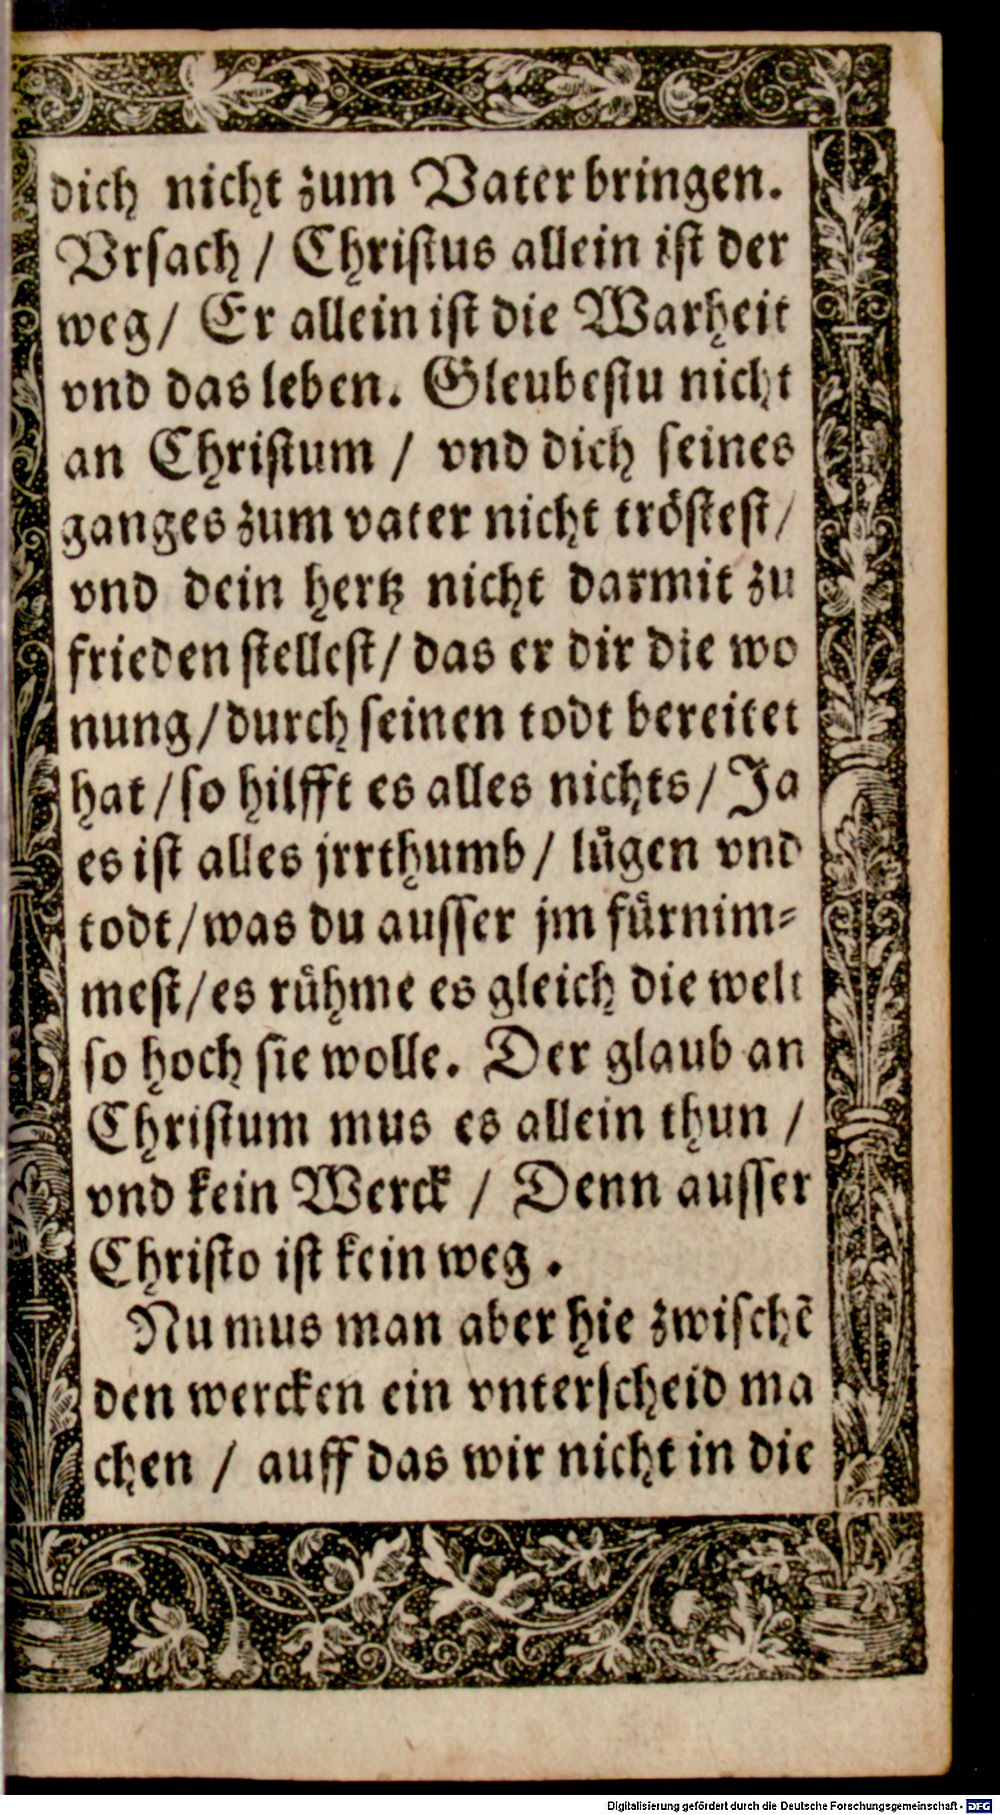 dich nicht zum Vater bringen.
Vrsach / Christus allein ist der
weg / Er allein ist die Warheit
vnd das leben. Gleubestu nicht
an Christum / vnd dich seines
ganges zum vater nicht tröstest /
vnd dein hertz nicht darmit zu
frieden stellest / das er dir die wo
nung / durch seinen todt bereitet
hat / so hilfft es alles nichts / Ja
es ist alles jrrthumb / lügen vnd
todt / was du ausser jm fürnim-
mest / es rühme es gleich die welt
so hoch sie wolle. Der glaub an
Christum mus es allein thun /
vnd kein Werck / Denn ausser
Christo ist kein weg.
Nu mus man aber hie zwischē
den wercken ein vnterscheid ma
chen / auff das wir nicht in die
Digitalisierung gefördert durch die Deutsche Forschungsgemeinschaft - DFG